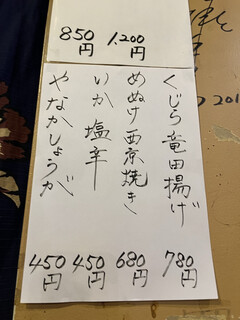 1,200円
850円
くじら竜田揚げ 780円
めぬけ西京焼き 680円
いか塩辛 450円
やなかしょうが 450円
201